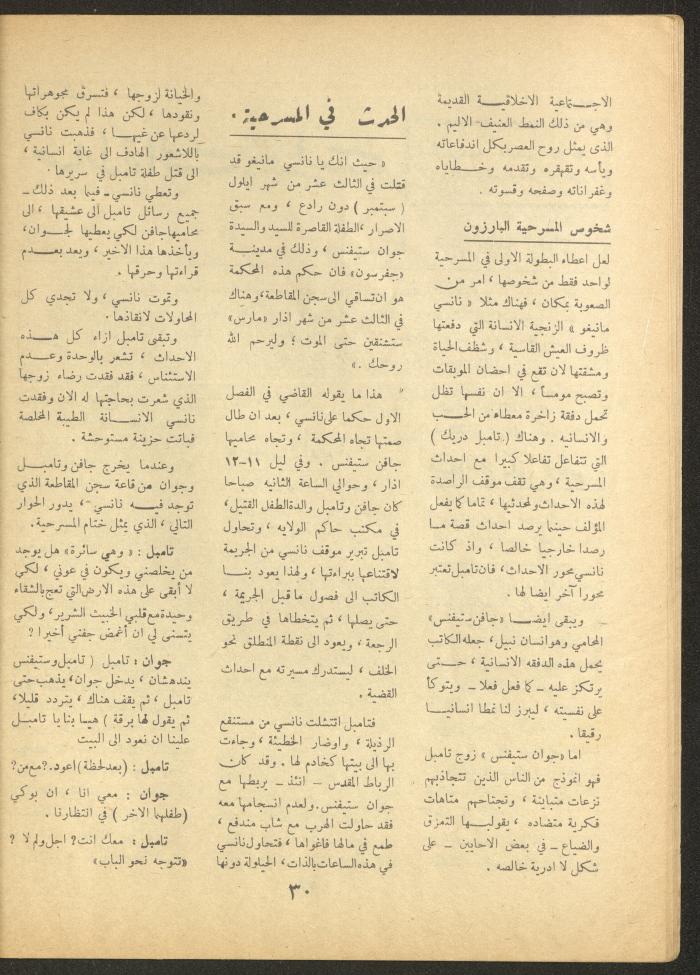 الاجتماعية الاخلاقية القديمة
وهي من ذلك النمط العنيف الاليم .
الذي يمثل روح العصر بكل اندفاعاته
ويأسه وتقهقره وتقدمه وخطاياه
وغفراناته وصفحه وقسوته .
شخوص المسرحية البارزون
لعل اعطاء البطولة الاولى في المسرحية
لواحد فقط من شخوصها ، امر من
الصعوبة بمكان ، فهناك مثلا « نانسي
مانيغو » الزنجية الانسانة التي دفعتها
ظروف العيش القاسية ، وشظف الحياة
ومشقتها لان تقع في احضان الموبقات
وتصبح مومساً ، الا ان نفسها تظل
تحمل دفقة زاخرة معطاء من الحب
والانسانيه . وهناك ( تامبل دريك )
التي تتفاعل تفاعلا كبيرا مع احداث
المسرحية ، وهي تقف موقف الراصدة
لهذه الاحداث ولمحدثيها ، تماما كما يفعل
المؤلف حينما يرصد احداث قصة ما
رصدا خارجيا خالصا ، واذ كانت
نانسي محور الاحداث ، فان تامبل تعتبر
محورا آخر ايضا لها .
ويبقى ايضا « جافن ستيفنس »
المحامي وهو انسان نبيل ، جعله الكاتب
يحمل هذه الدفقه الانسانية ، حتى
يرتكز عليه ـ كما فعل فعلا ـ ويتوكأ
على نفسيته ، ليبرز لنا نمطا انسانيا
رقيقا .
اما « جوان ستيفنس » زوج تامبل
فهو انموذج من الناس الذين تتجاذبهم
نزعات متباينة ، وتجتاحهم متاهات
فكرية متضاده ، يقولبها التمزق
والضياع ـ في بعض الاحايين ـ على
شكل لا ادرية خالصه .
الحدث في المسرحية .
« حيث انك يا نانسي مانيغو قد
قتلت في الثالث عشر من شهر ايلول
( سبتمبر ) دون رادع ، ومع سبق
الاصرار ، الطفلة القاصرة للسيد والسيدة
جوان ستيفنس ، وذلك في مدينة
«جفرسون» فان حكم هذه المحكمة
هو ان تساقي الى سجن المقاطعة ، وهناك
في الثالث عشر من شهر اذار «مارس»
ستشنقين حتى الموت ؛ وليرحم الله
روحك .»
هذا ما يقوله القاضي في الفصل
الاول حكما على نانسي ، بعد ان طال
صمتها تجاه المحكمة ، وتجاه محاميها
جافن ستيفنس . وفي ليل ١١-١٢
اذار ، وحوالي الساعة الثانيه صباحا
كان جافن وتامبل والدة الطفل القتيل ،
في مكتب حاكم الولايه ، وتحاول
تامبل تبرير موقف نانسي من الجريمة
لاقتناعها ببراءتها ، ولهذا يعود بنا
الكاتب الى فصول ما قبل الجريمة ،
حتى يصلها ، ثم يتخطاها في طريق
الرجعة ، ويعود الى نقطة المنطلق نحو
الخلف ، ليستدرك مسيرته مع احداث
القضية .
فتامبل انتشلت نانسي من مستنقع
الرذيلة ، واوضار الخطيئة ، وجاءت
بها الى بيتها كخادم لها . وقد كان
الرباط المقدس ـ انئذ ـ يربطها مع
جوان ستيفنس . ولعدم انسجامها معه
فقد حاولت الهرب مع شاب مندفع ،
طمع في مالها فاغواها ، فتحاول نانسي
في هذه الساعات بالذات ، الحيلولة دونها
والخيانة لزوجها ، فتسرق مجوهراتها
ونقودها ، لكن هذا لم يكن بكاف
لردعها عن غيها ، فذهبت نانسي
باللاشعور الهادف الى غاية انسانية ،
الى قتل طفلة تامبل في سريرها .
وتعطي نانسي ـ فيما بعد ذلك ـ
جميع رسائل تامبل الى عشيقها ، الى
محاميها جافن لكي يعطيها لجوان ،
ويأخذها هذا الاخير ، وبعد بعدم
قراءتها وحرقها .
وتموت نانسي ، ولا تجدي كل
المحاولات لانقاذها .
وتبقى تامبل ازاء كل هذه
الاحداث ، تشعر بالوحدة وعدم
الاستئناس ، فقد فقدت رضاء زوجها
الذي شعرت بحاجتها له الان وفقدت
نانسي الانسانة الطيبة المخلصة
فباتت حزينة مستوحشة .
وعندما يخرج جافن وتامبل
وجوان من قاعة سجن المقاطعة الذي
توجد فيه نانسي ، يدور الحوار
التالي ، الذي يمثل ختام المسرحية .
تامبل : « وهي سائرة » هل يوجد
من يخلصني ويكون في عوني ، لكي
لا أبقى على هذه الارض التي تعج بالشقاء
وحيدة مع قلبي الخبيث الشرير ، ولكي
يتسنى لي ان أغمض جفني أخيرا ؟
جوان : تامبل ( تامبل وستيفنس
يندهشان ، يدخل جوان ، يذهب حتى
تامبل ، ثم يقف هناك ، يتردد قليلا ،
ثم يقول لها برقة ) هيا بنا يا تامبل
علينا ان نعود الى البيت
تامبل : (بعد لحظة) اعود .؟ مع من ؟
جوان : معي انا ، ان بوكي
( طفلهما الاخر ) في انتظارنا .
تامبل : معك انت ؟ اجل ولم لا ؟
«تتوجه نحو الباب»
٣٠